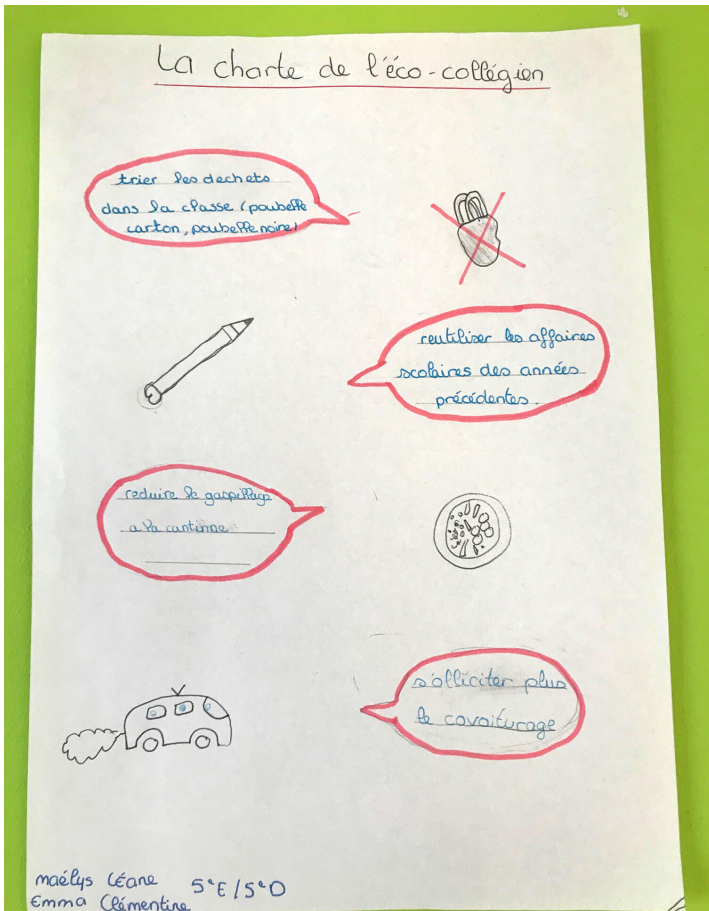 La charte de l'éco-collégien
trier les dechets
dans la classe (poubelle
carton, poubelle noire)
reutiliser les affaires
scolaires des années
précédentes.
reduire le gaspillage
a la cantinne
s'olliciter plus
le covoiturage
maélys Léane 5eE/5eD
Emma Clémentine